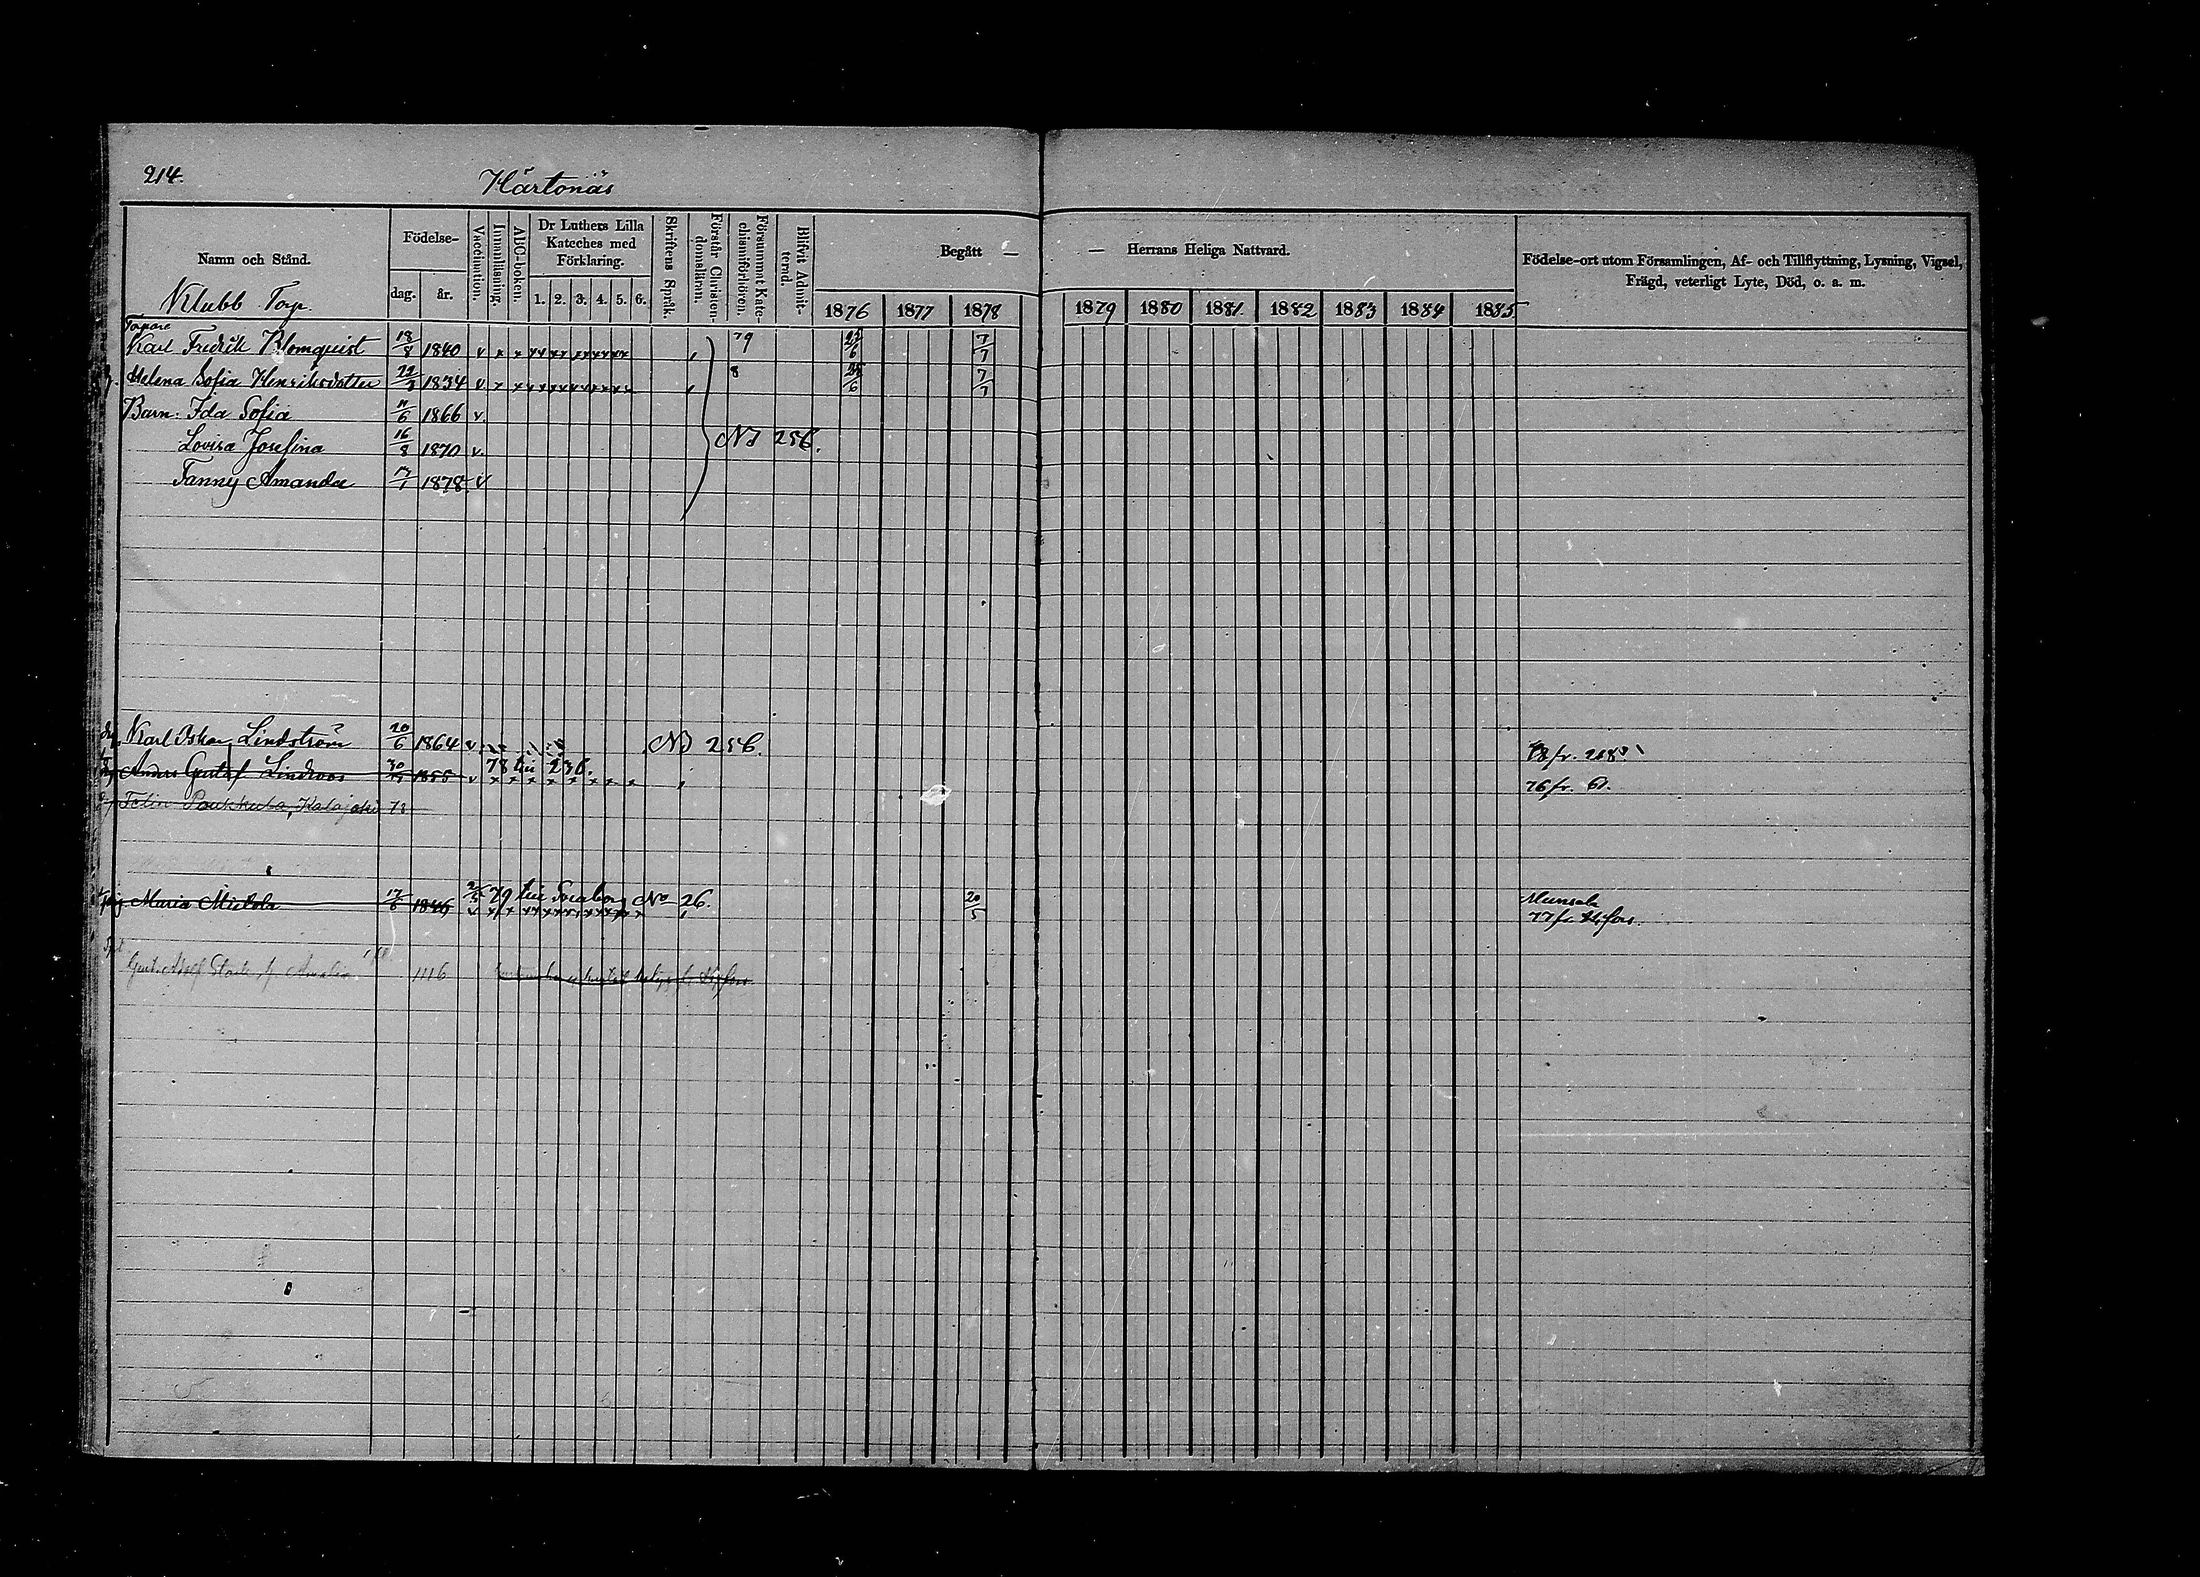 214.
Härtonäs
Namn och Stånd.
Födelse-
dag.
år.
Vaccination.
Innanläsning.
ABC-boken.
Dr Luthers Lilla Kateches med Förklaring.
1. 2. 3. 4. 5. 6.
Skriftens Språk.
Förstår Christendomsläran.
Försummat Katechismiförhören.
Blifvit Admitterad.
Begått —
— Herrans Heliga Nattvard.
1876 1877 1878 1879 1880 1881 1882 1883 1884 1885
Födelse-ort utom Församlingen, Af- och Tillflyttning, Lysning, Vigsel,
Frägd, veterligt Lyte, Död, o. a. m.
Klubb Torp.
Torpare
Karl Fredrik Blomquist 18/8 1840 v x x xx xx xxxxxx 79 25/6 7/7
Helena Sofia Henriksdotter 22/3 1834 v x x xxxxxxxxxx 8 25/6 7/7
Barn: Ida Sofia 11/6 1866 v.
N3 256.
Lovisa Josefina 16/8 1870 v.
Fanny Amanda 17/1 1878 v
Karl Oskar Lindström 20/6 1864 v N3 256. 78 fr. 218
Anders Gustaf Lindroos 30 1855 v 78 till 236. x x x x x x x x 76 fr. 61.
Kalajoki 78
Maria 17 1846 79 till Sveaborg No 26. 20/5 Munsala
77 fr. H:fors.
Gust. Adolf 1116 H:fors